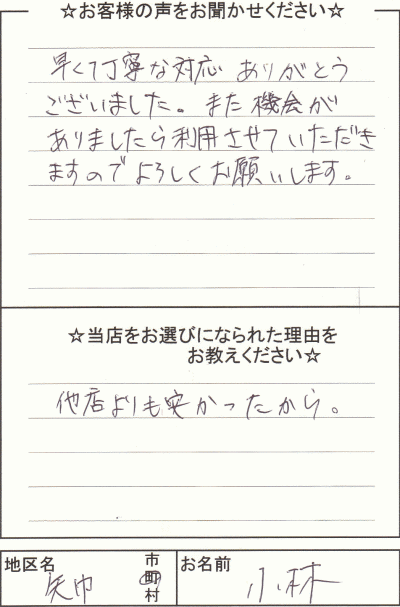 ☆お客様の声をお聞かせください☆
早くて丁寧な対応 ありがとう
ございました。また機会が
ありましたら利用させていただき
ますのでよろしくお願いします。
☆当店をお選びになられた理由を
お教えください☆
他店よりも安かったから。
地区名
矢巾
市
町
村
お名前
小林